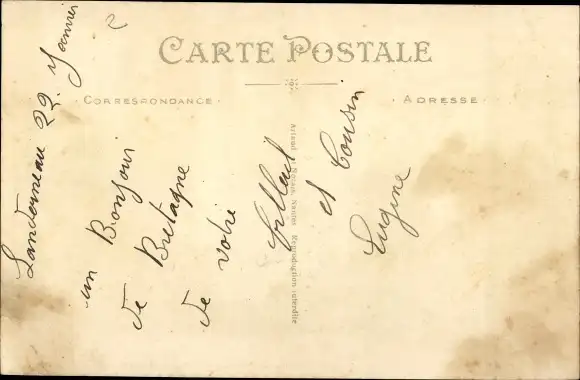 CARTE POSTALE
CORRESPONDANCE
ADRESSE
Landerneau 22 Janvier
un Bonjour
de Bretagne
de votre
filleul
et Cousin
Eugène
Artaud et Nozais Nantes Reproduction interdite